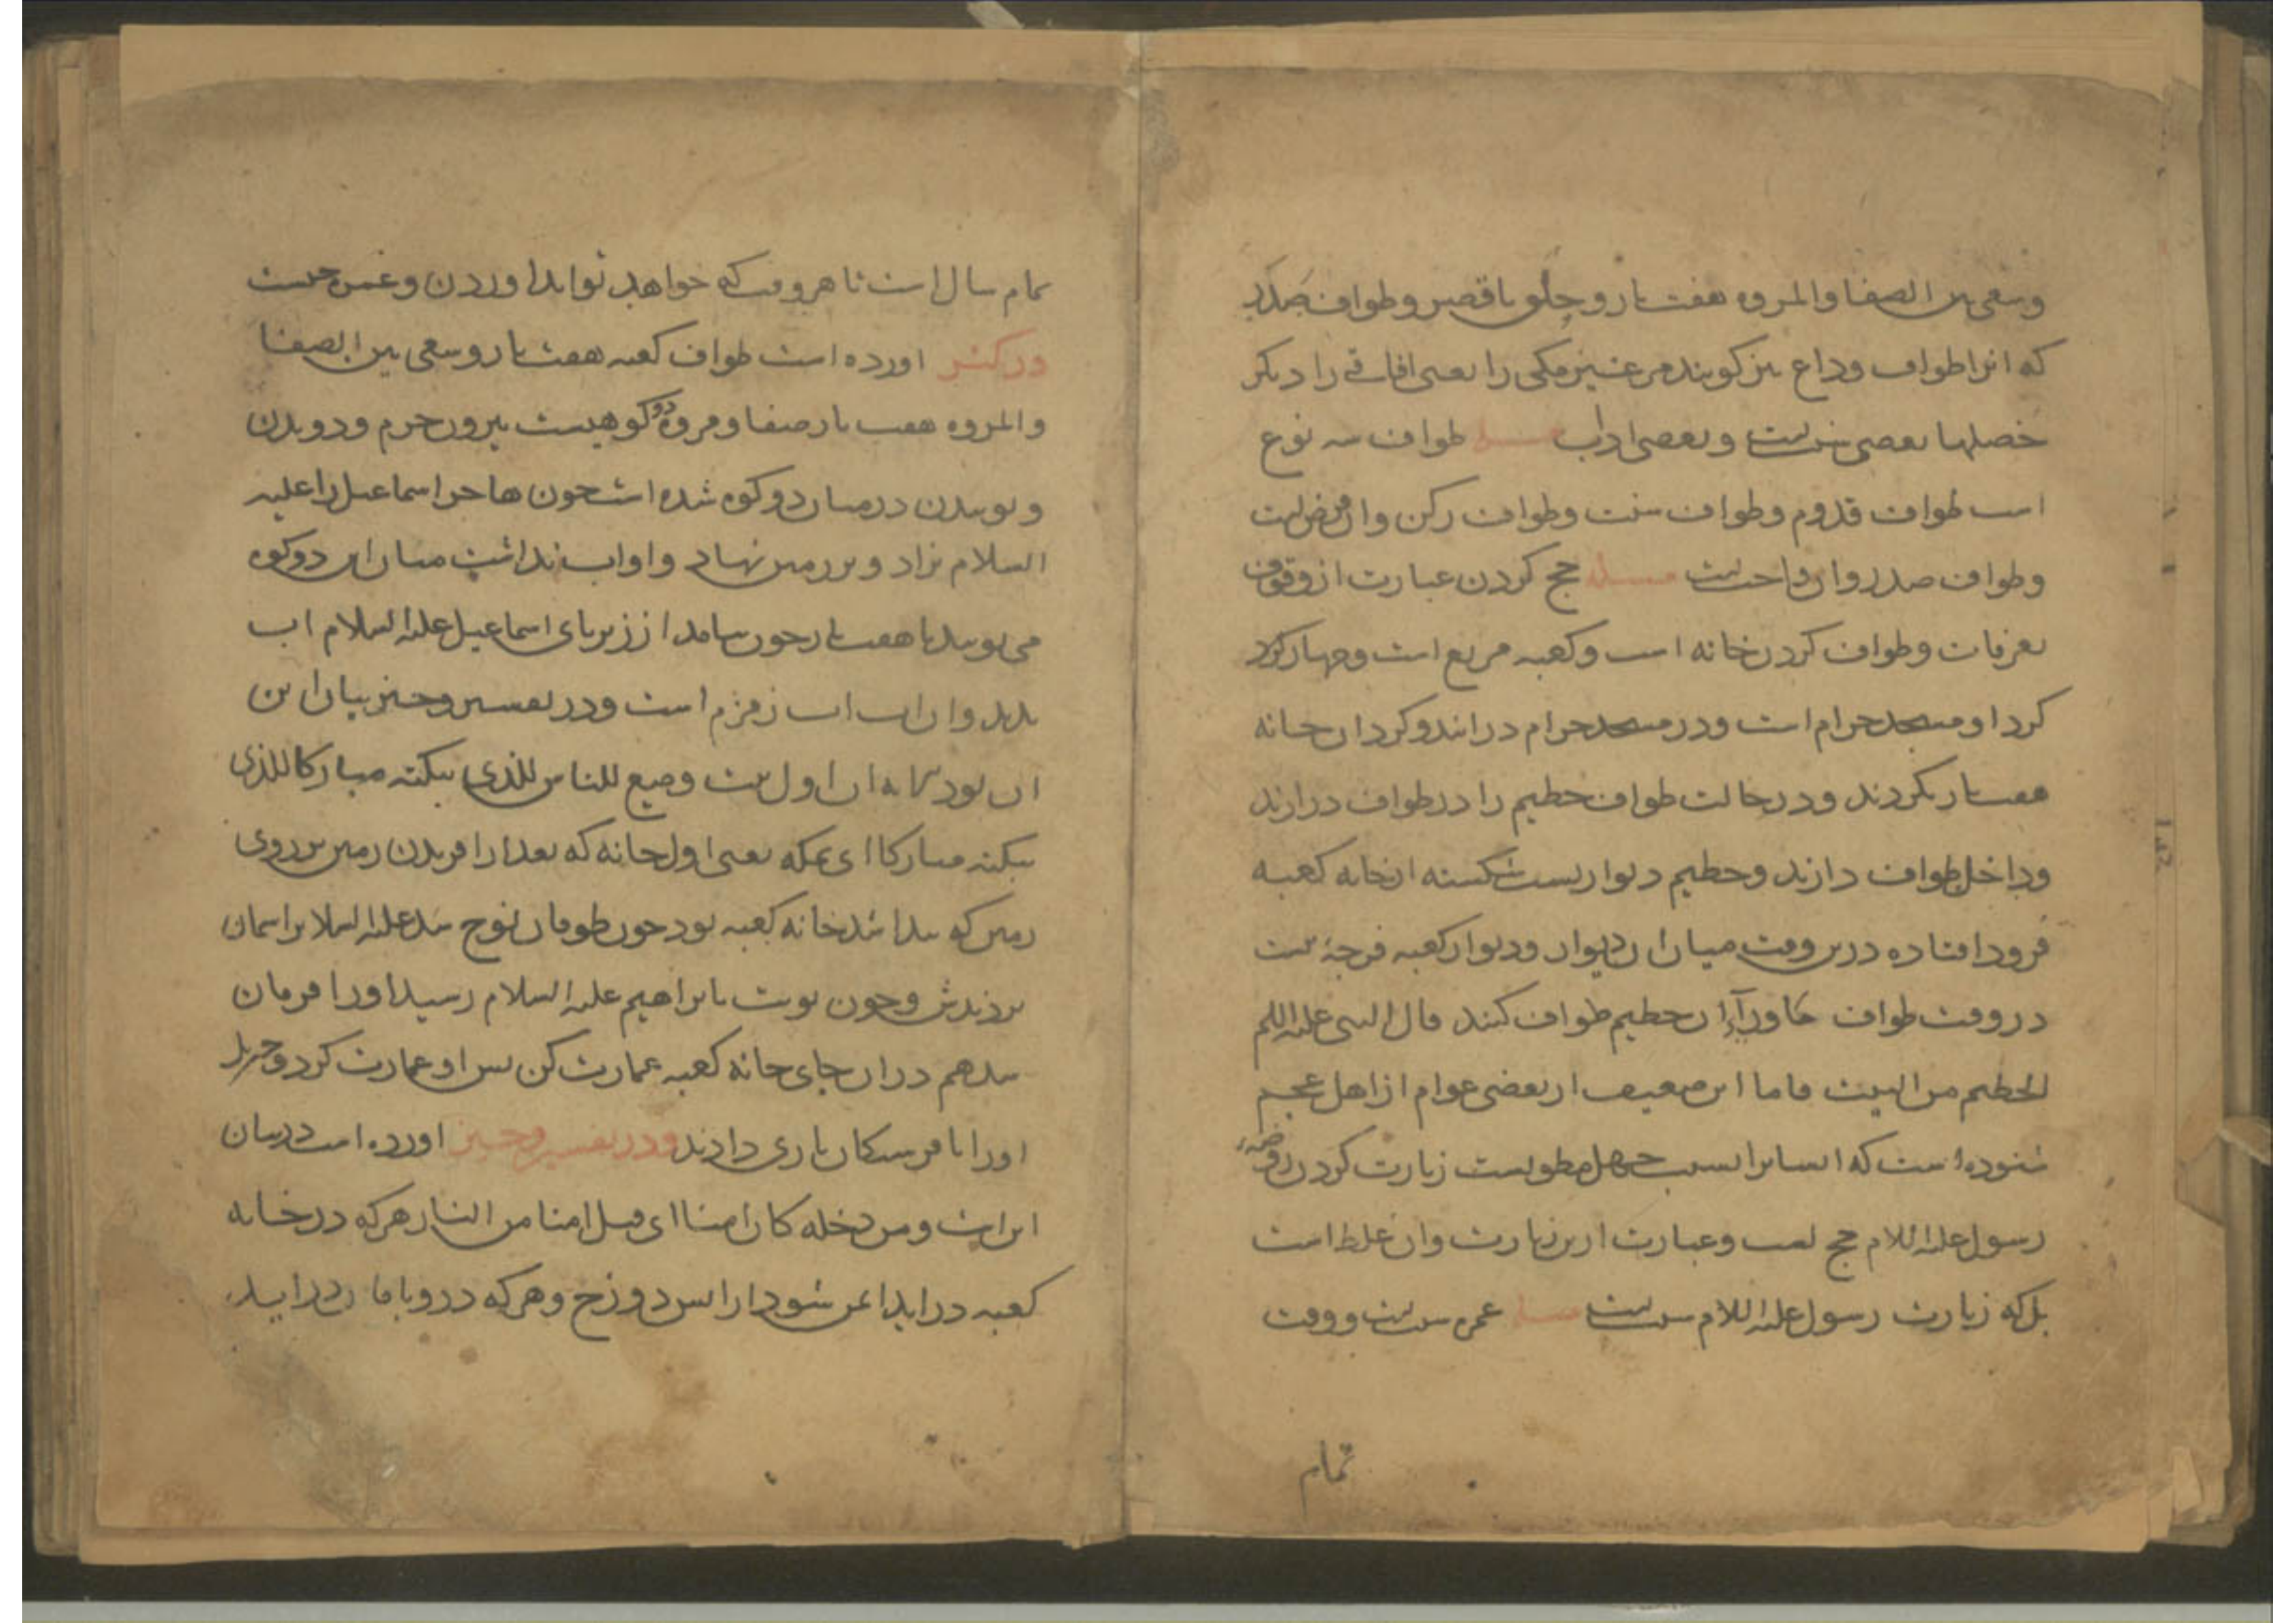 وسعی بین الصفا والمروه هفت بار وحلق یا قصر وطواف صدر
که انرا طواف وداع نیز کویند مر غیر مکی را یعنی افاقی را دیکر
خصلها بعضی سنت است وبعضی اداب مسله طواف سه نوع
است طواف قدوم وطواف سنت وطواف رکن وان فرض است
وطواف صدر وان واجب است مسله حج کردن عبارت از وقوف
بعرفات وطواف کردن خانه است وکعبه مربع است وچهار کرد
کرد او مسجد حرام است ودر مسجد حرام در ایند وکرد ان خانه
هفت بار بکردند ودر حالت طواف حطیم را در طواف در ارند
وداخل طواف دارند وحطیم دیواریست شکسته از خانه کعبه
فرود افتاده درین وقت میان ان دیوار ودیوار کعبه فرجه است
در وقت طواف ان حطیم طواف کنند قال النبی علیه السلم
الحطیم من البیت فاما این ضعیف از بعضی عوام از اهل عجم
شنوده است که ایشانرا بسبب جهل زیارت کردن روضه
رسول علیه السلام حج وعبارت ازین زیارت وان غلط است
بل که زیارت رسول علیه السلام سنت است مسله عمره سنت است ووقت
تمام
تمام سال است تا هر وقت که خواهد تواند اوردن
در کنز اورده است طواف کعبه هفت بار وسعی بین الصفا
والمروه هفت بار صفا ومروه دو کوهیست بیرون حرم ودویدن
وپوییدن درمیان دو کوه شده است چون هاجر اسماعیل را علیه
السلام بزاد وبر زمین نهاد واو اب نداشت میان این دو کوه
می پویید تا هفت بار چون بیامد از زیر پای اسماعیل علیه السلام اب
بدید وان اب اب زمزم است ودر تفسیر وجیز بیان این
ان اول بیت وضع للناس للذی ببکته مبارکا للذی
ببکته مبارکا ای بمکه یعنی اول خانه که بعد از افریدن زمین بر روی
زمین که پیدا شد خانه کعبه بود چون طوفان نوح شد علیه السلام بر اسمان
بردندش وچون نوبت بابراهیم علیه السلام رسید اورا فرمان
شد هم در ان جای خانه کعبه عمارت کن پس او عمارت کرد وجبریل
اورا با فریستکان یاری دادند ودر تفسیر وجیز اورده است در بیان
این ایت ومن دخله کان امنا ای قیل امنا من النار هر که در خانه
کعبه در اید ایمن شود از اتش دوزخ وهر که در وی با در اید